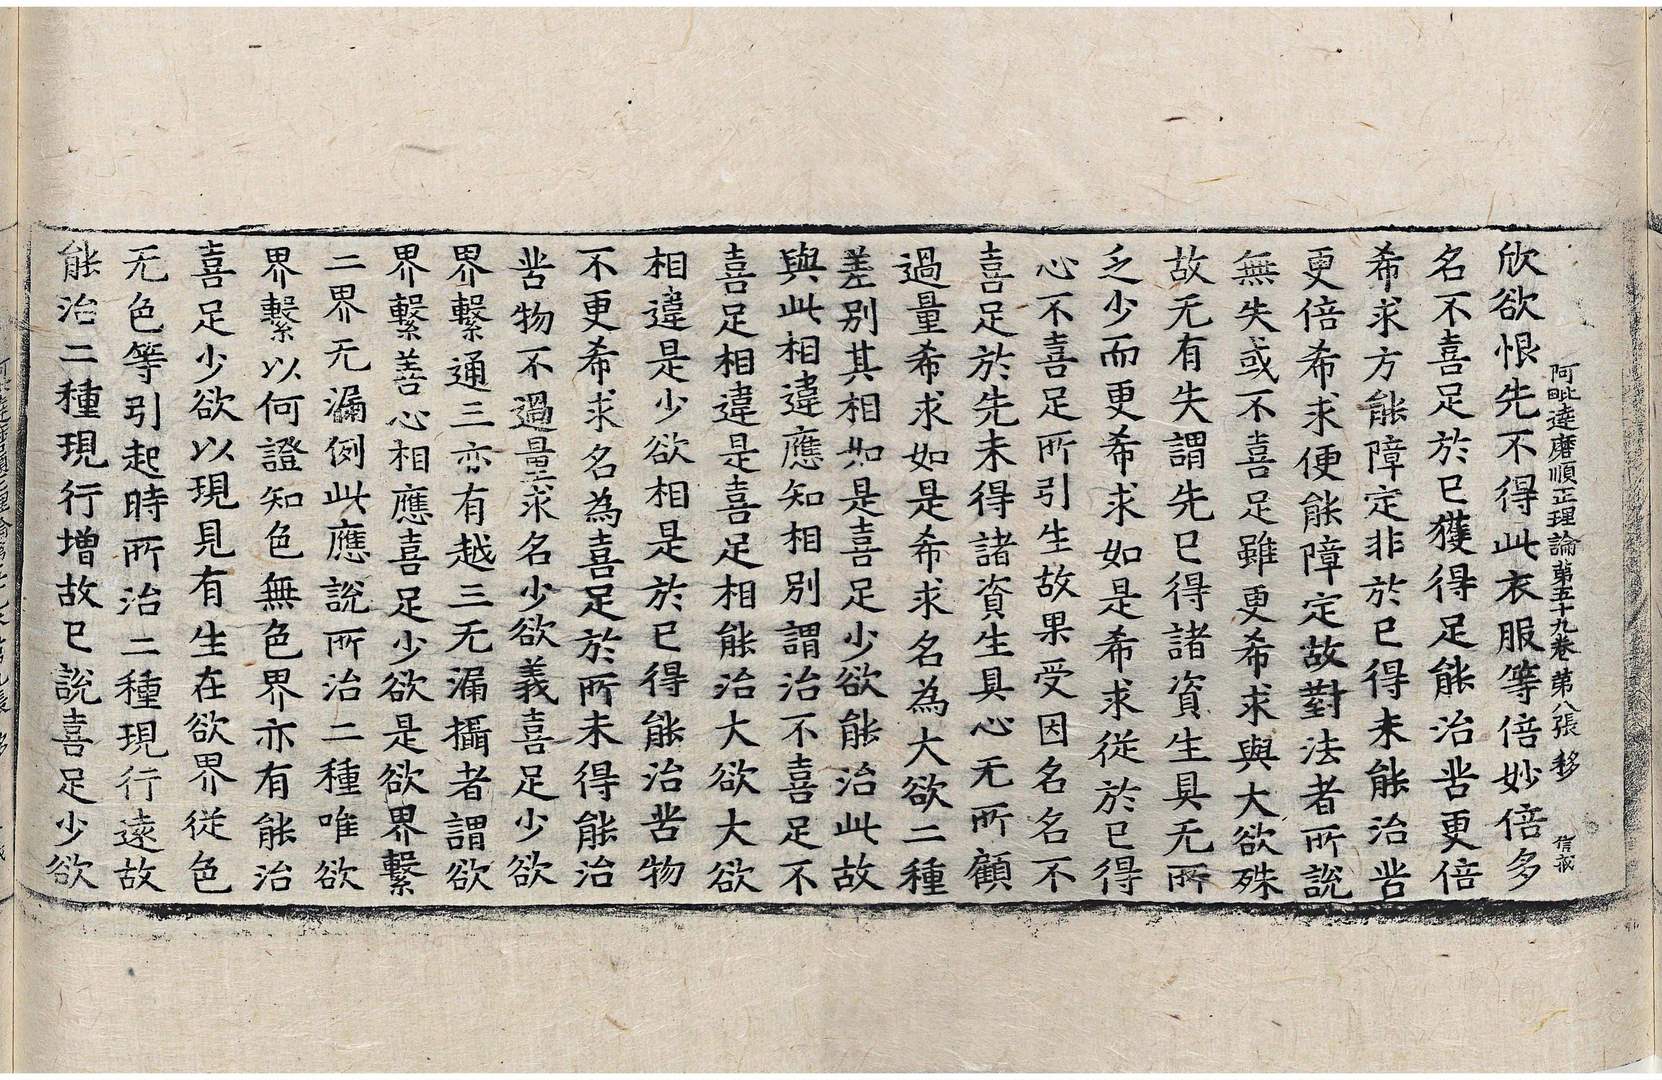 阿毗達磨順正理論第五十九卷第八張 移
欣欲恨先不得此衣服等倍妙倍多
名不喜足於已獲得足能治苦更倍
希求方能障定非於已得未能治苦
更倍希求便能障定故對法者所說
無失或不喜足雖更希求與大欲殊
故无有失謂先已得諸資生具无所
乏少而更希求如是希求從於已得
心不喜足所引生故果受因名名不
喜足於先未得諸資生具心无所顧
過量希求如是希求名為大欲二種
差別其相如是喜足少欲能治此故
與此相違應知相別謂治不喜足不
喜足相違是喜足相能治大欲大欲
相違是少欲相是於已得能治苦物
不更希求名為喜足於所未得能治
苦物不過量求名少欲義喜足少欲
界繫通三亦有越三无漏攝者謂欲
界繫善心相應喜足少欲是欲界繫
二界无漏例此應說所治二種唯欲
界繫以何證知色無色界亦有能治
喜足少欲以現見有生在欲界從色
无色等引起時所治二種現行遠故
能治二種現行增故已說喜足少欲